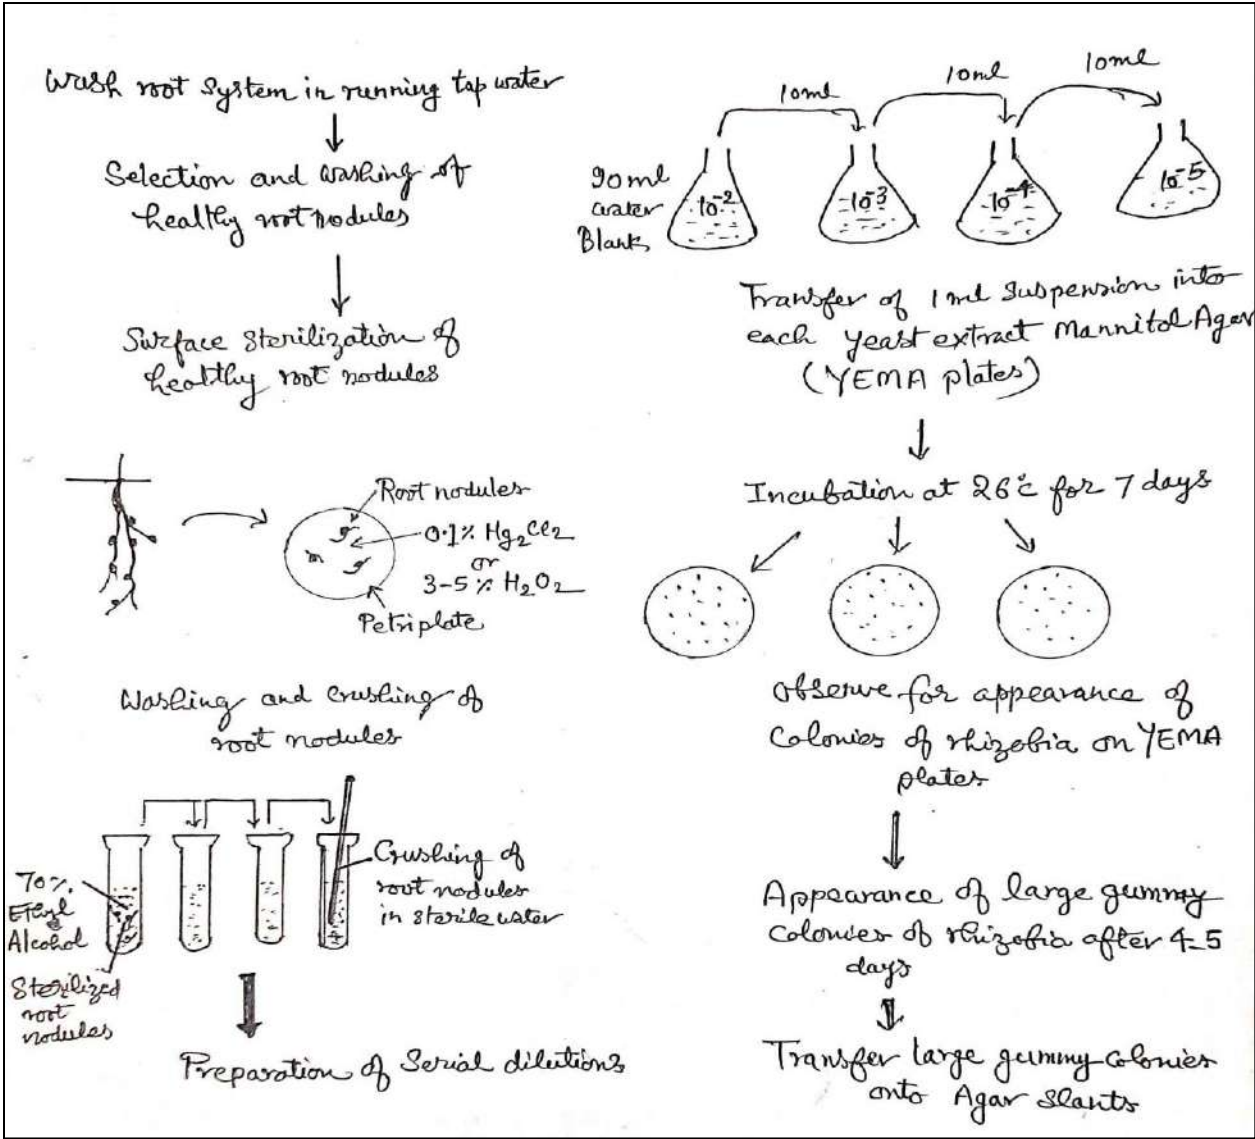 Wash root system in running tap water
Selection and washing of
healthy root nodules
Surface sterilization of
healthy root nodules
Root nodules
0.1% Hg2Cl2
or
3-5% H2O2
Petriplate
Washing and crushing of
root nodules
70%
Ethyl
Alcohol
Sterilized
root
nodules
Crushing of
root nodules
in sterile water
Preparation of Serial dilutions
10ml
10ml
10ml
90ml
water
Blanks
10-2
10-3
10-4
10-5
Transfer of 1ml suspension into
each yeast extract Mannitol Agar
(YEMA plates)
Incubation at 26°c for 7 days
Observe for appearance of
Colonies of rhizobia on YEMA
plates
Appearance of large gummy
colonies of rhizobia after 4-5
days
Transfer large gummy colonies
onto Agar Slants